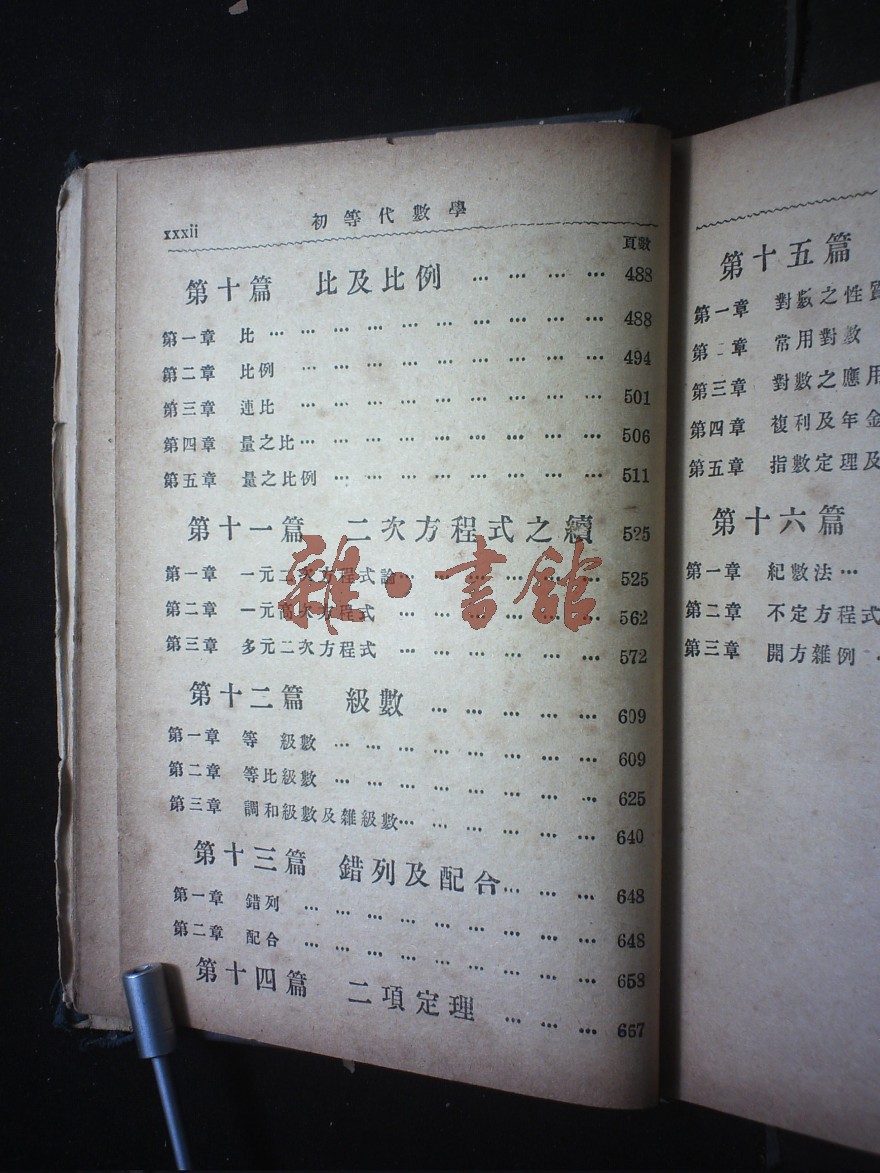 xxxii 初等代數學
頁數
第十篇 比及比例 … … … … 488
第一章 比 … … … … … … … … … … 488
第二章 比例 … … … … … … … … … 494
第三章 連比 … … … … … … … … … 501
第四章 量之比 … … … … … … … … … 506
第五章 量之比例 … … … … … … … … 511
第十一篇 二次方程式之續 525
第一章 一元二次方程式論 … … … … … … 525
第二章 一元高次方程式 … … … … … … 562
第三章 多元二次方程式 … … … … … … 572
第十二篇 級數 … … … … … 609
第一章 等 級數 … … … … … … … … 609
第二章 等比級數 … … … … … … … … 625
第三章 調和級數及雜級數 … … … … … … 640
第十三篇 錯列及配合 … … … 648
第一章 錯列 … … … … … … … … … 648
第二章 配合 … … … … … … … … … 658
第十四篇 二項定理 … … … 667
雜·書館
第十五篇
第一章 對數之性質
第二章 常用對數
第三章 對數之應用
第四章 複利及年金
第五章 指數定理及
第十六篇
第一章 紀數法 …
第二章 不定方程式
第三章 開方雜例